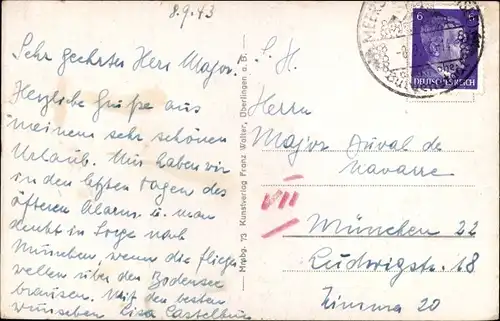 8.9.43
Sehr geehrter Herr Major!
Herzliche Grüße aus
meinem sehr schönen
Urlaub. Nur haben wir
in den letzten Tagen des
öfteren Alarm u. man
denkt in Sorge nach
München, wenn die Flieger
wellen über den Bodensee
brausen. Mit den besten
wünschen Lisa
Mrsbg. 73 Kunstverlag Franz Walter, Überlingen a. B.
S. H.
Herrn
Major Duval de
Navarre
VII
München 22
Ludwigstr. 18
Zimma 20
6
DEUTSCHES REICH